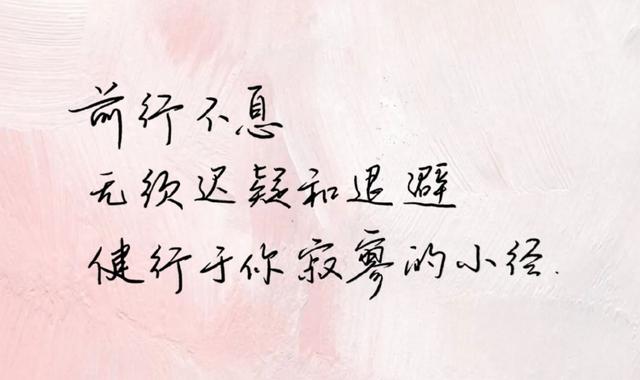 前行不息
无须迟疑和退避
健行于你寂寥的小径.